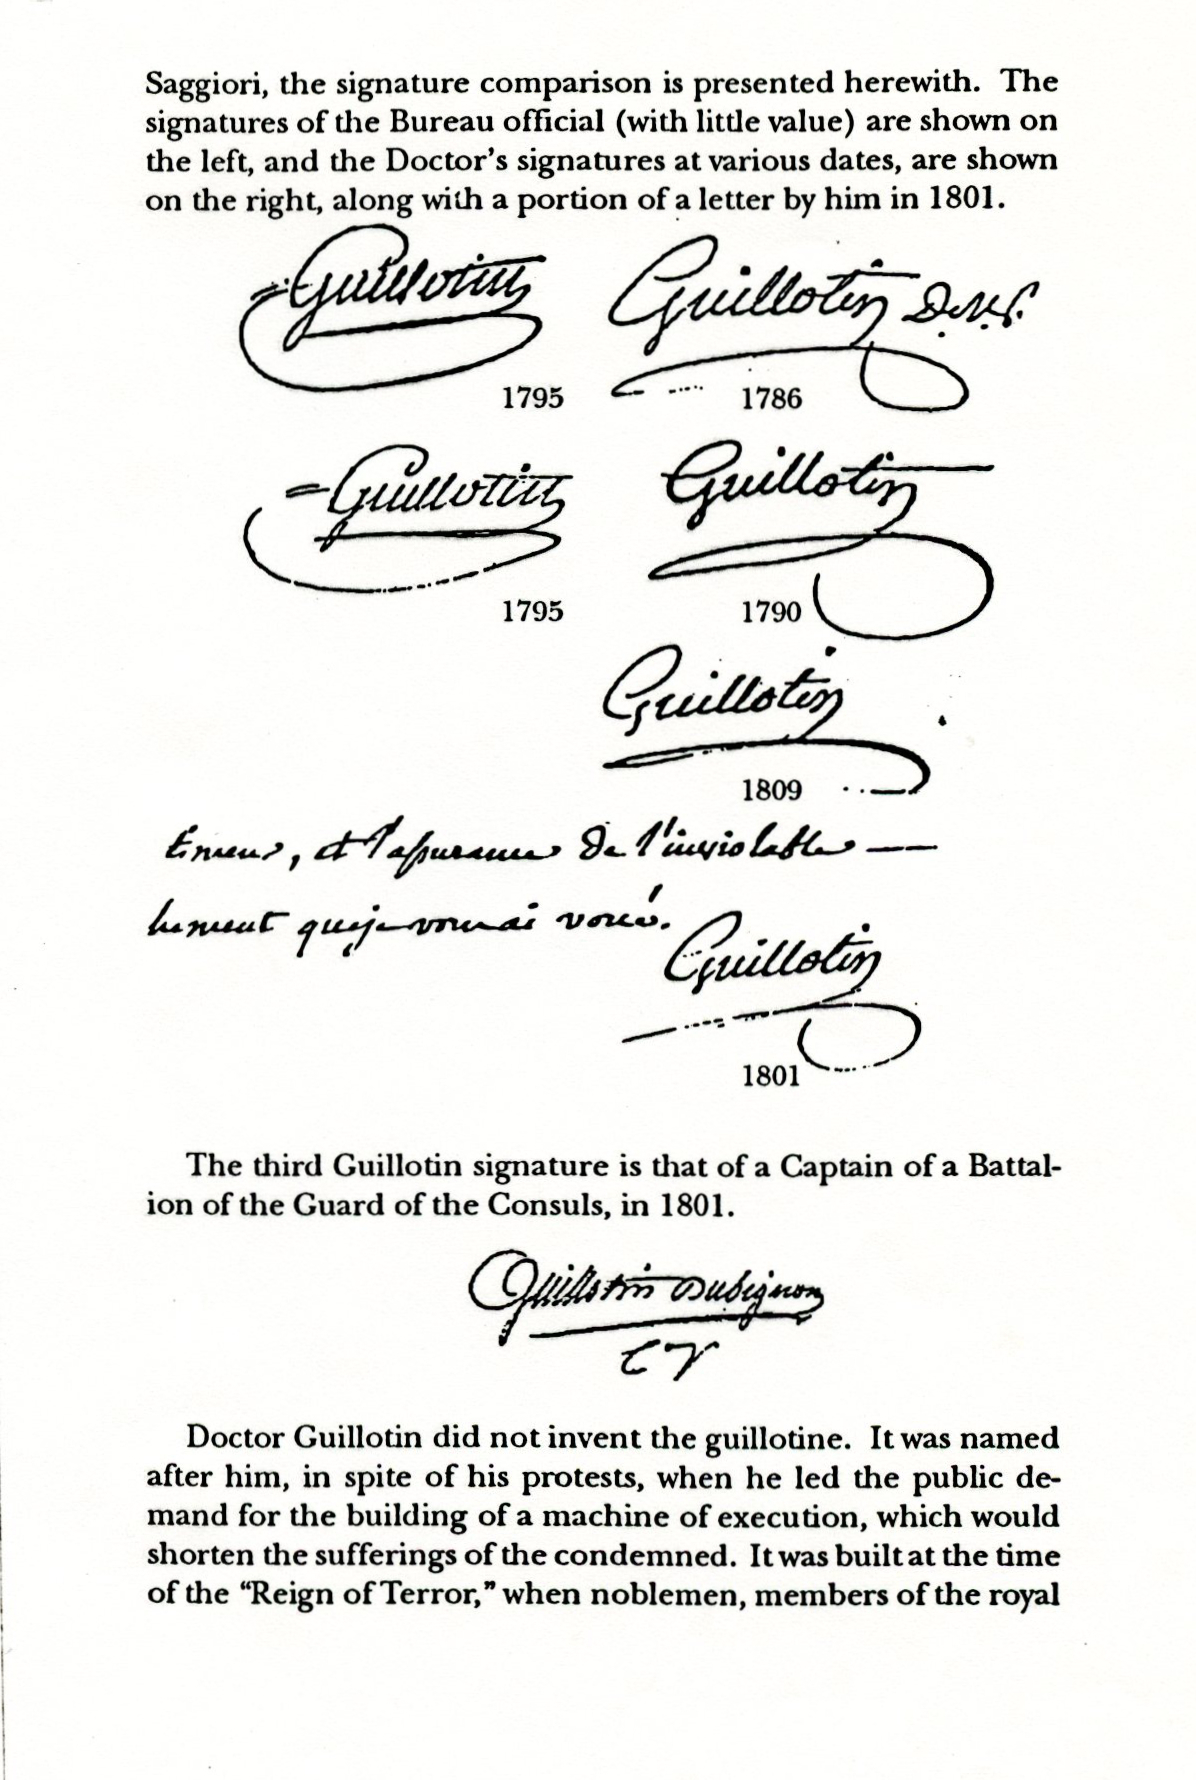 Saggiori, the signature comparison is presented herewith. The
signatures of the Bureau official (with little value) are shown on
the left, and the Doctor's signatures at various dates, are shown
on the right, along with a portion of a letter by him in 1801.
Guillotin Guillotin D.M.P.
1795 1786
Guillotin Guillotin
1795 1790
Guillotin
1809
et l'assurance de l'inviolable
que je vous ai voué.
Guillotin
1801
The third Guillotin signature is that of a Captain of a Battal-
ion of the Guard of the Consuls, in 1801.
Guillotin Dubignon
Doctor Guillotin did not invent the guillotine. It was named
after him, in spite of his protests, when he led the public de-
mand for the building of a machine of execution, which would
shorten the sufferings of the condemned. It was built at the time
of the “Reign of Terror,” when noblemen, members of the royal